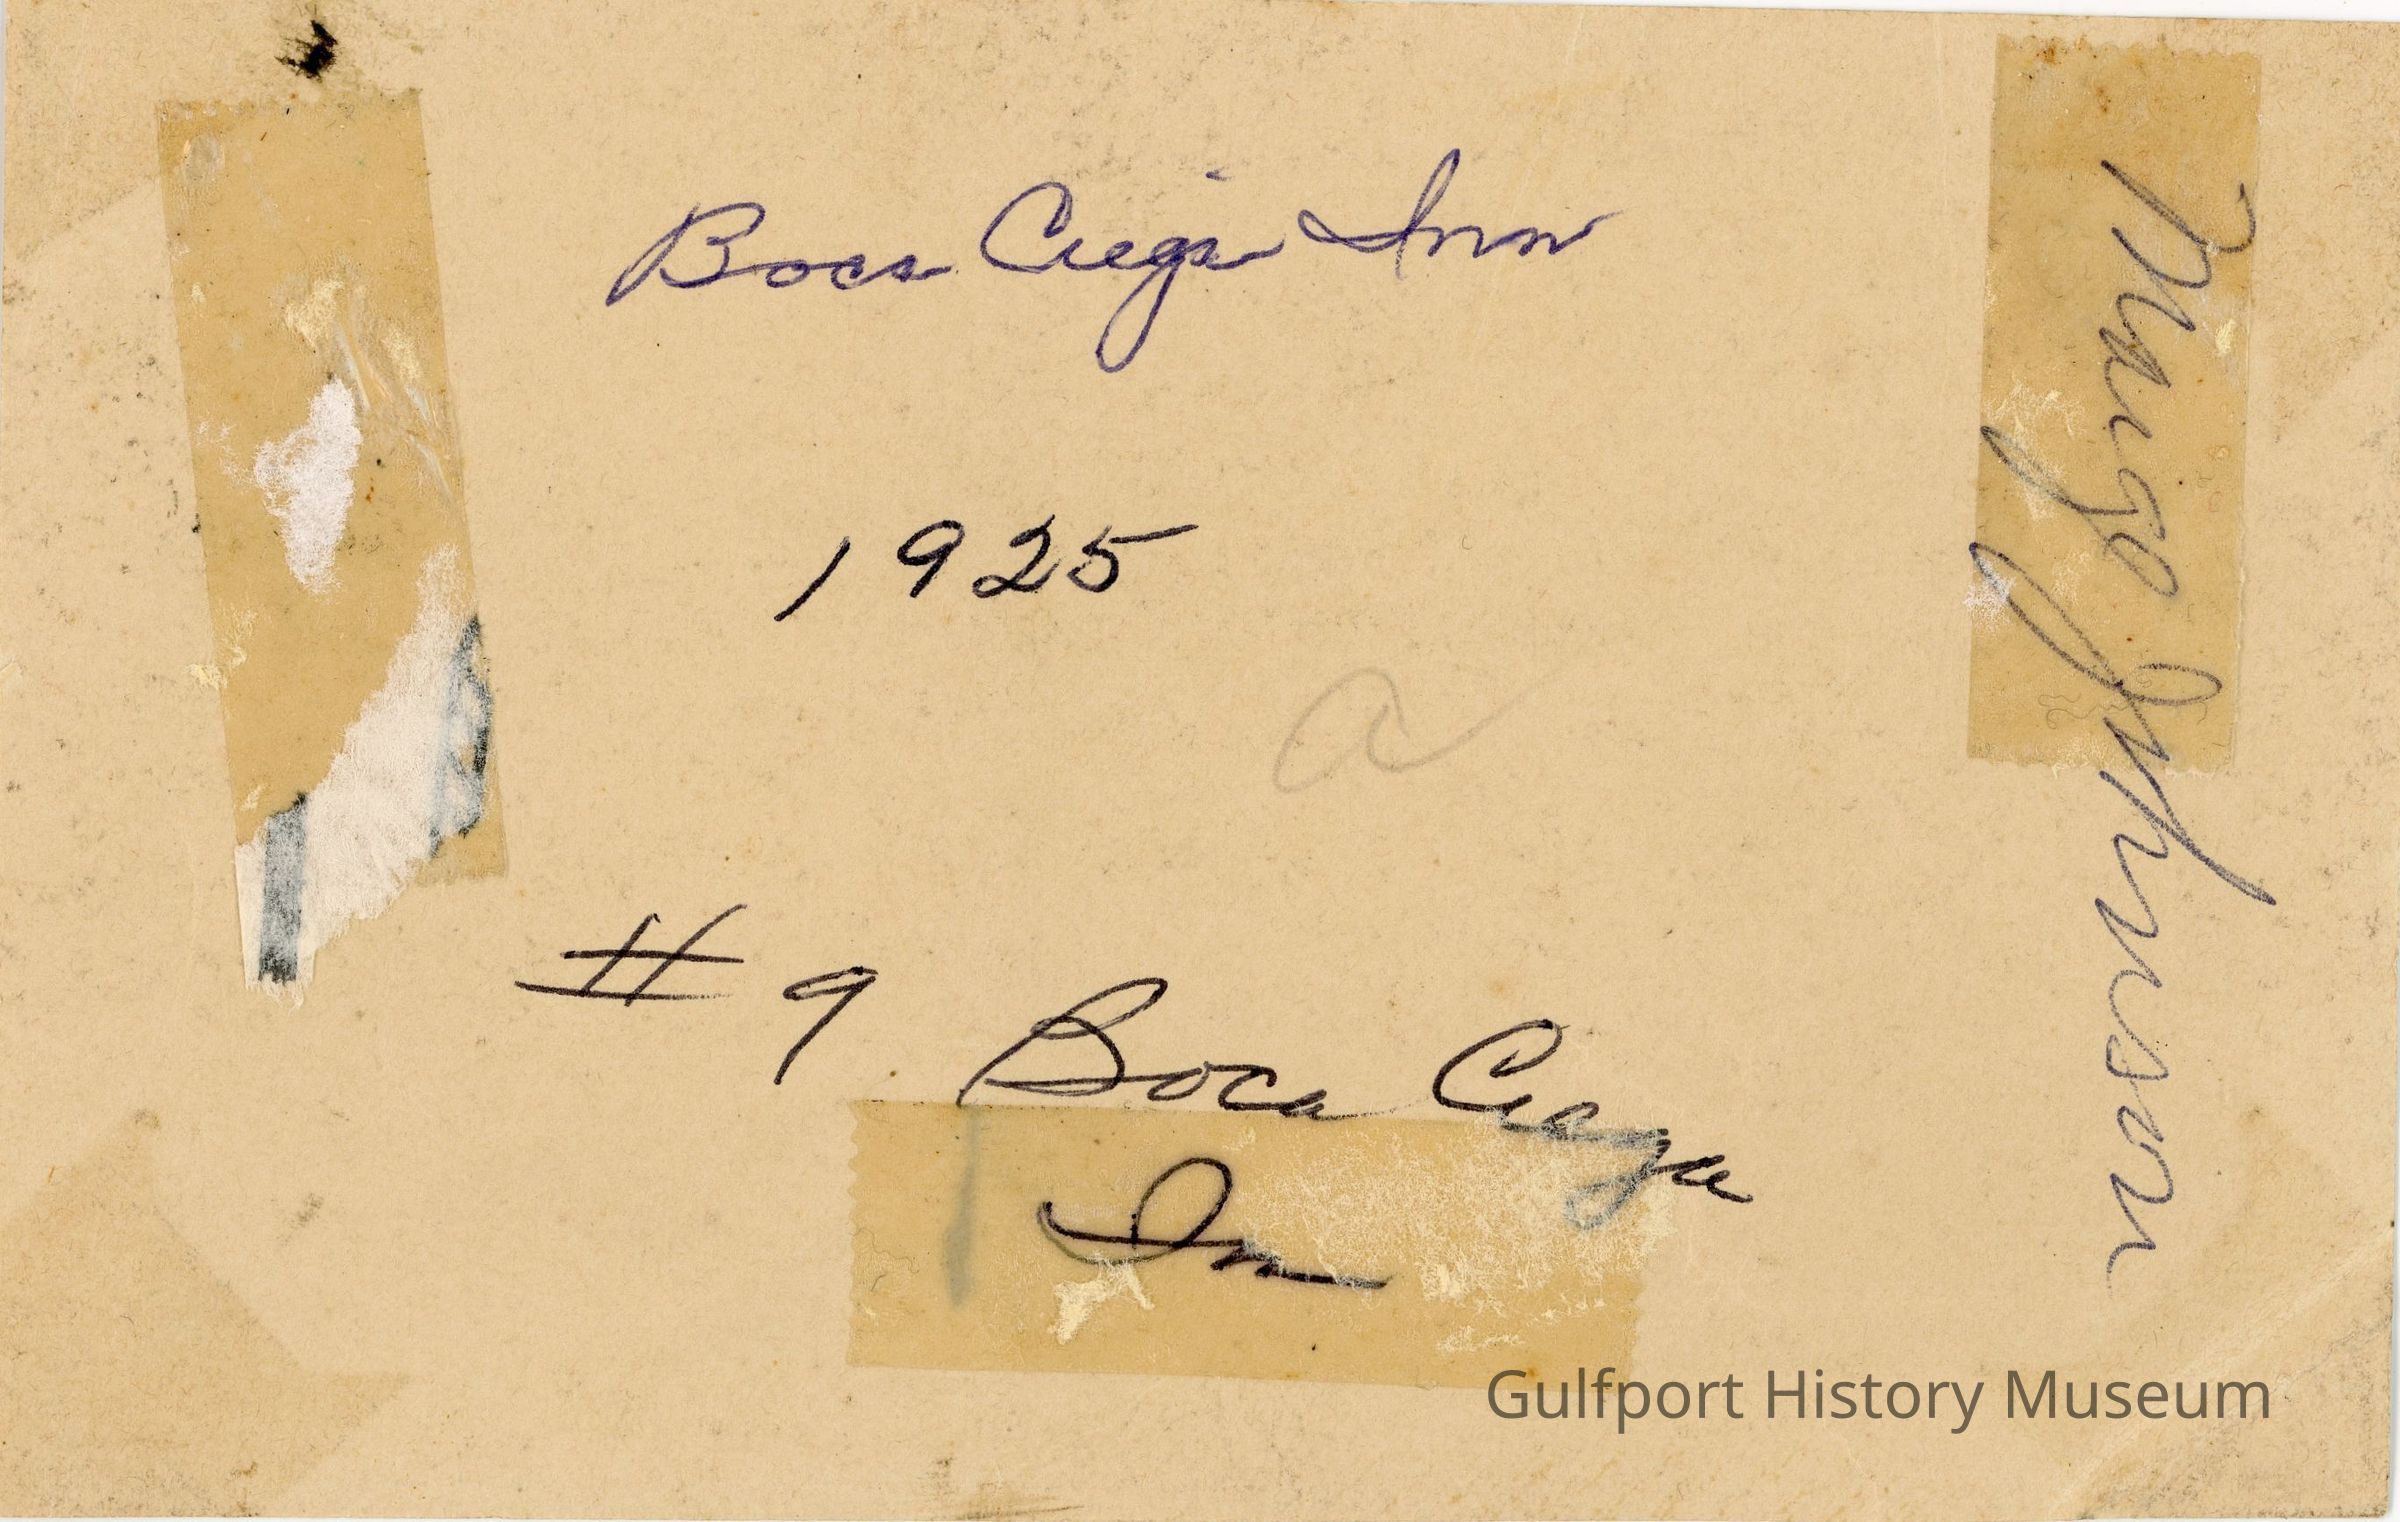 Boca Ciega Inn
1925
a
#9 Boca Ciega
Inn
Johnson
Gulfport History Museum